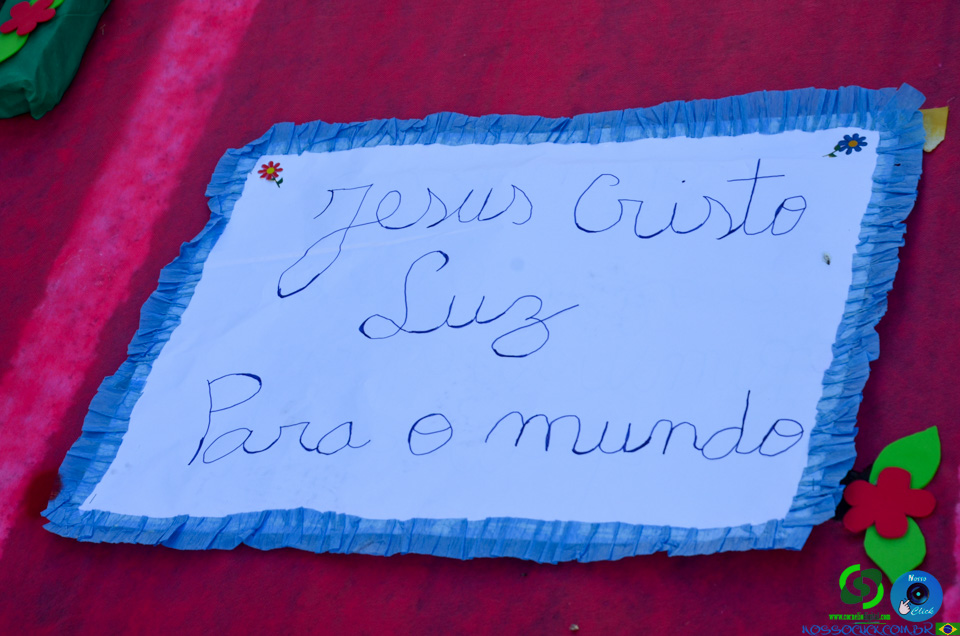 Jesus Cristo
Luz
Para o mundo
Nosso
Click
NOSSOCLICK.COM.BR